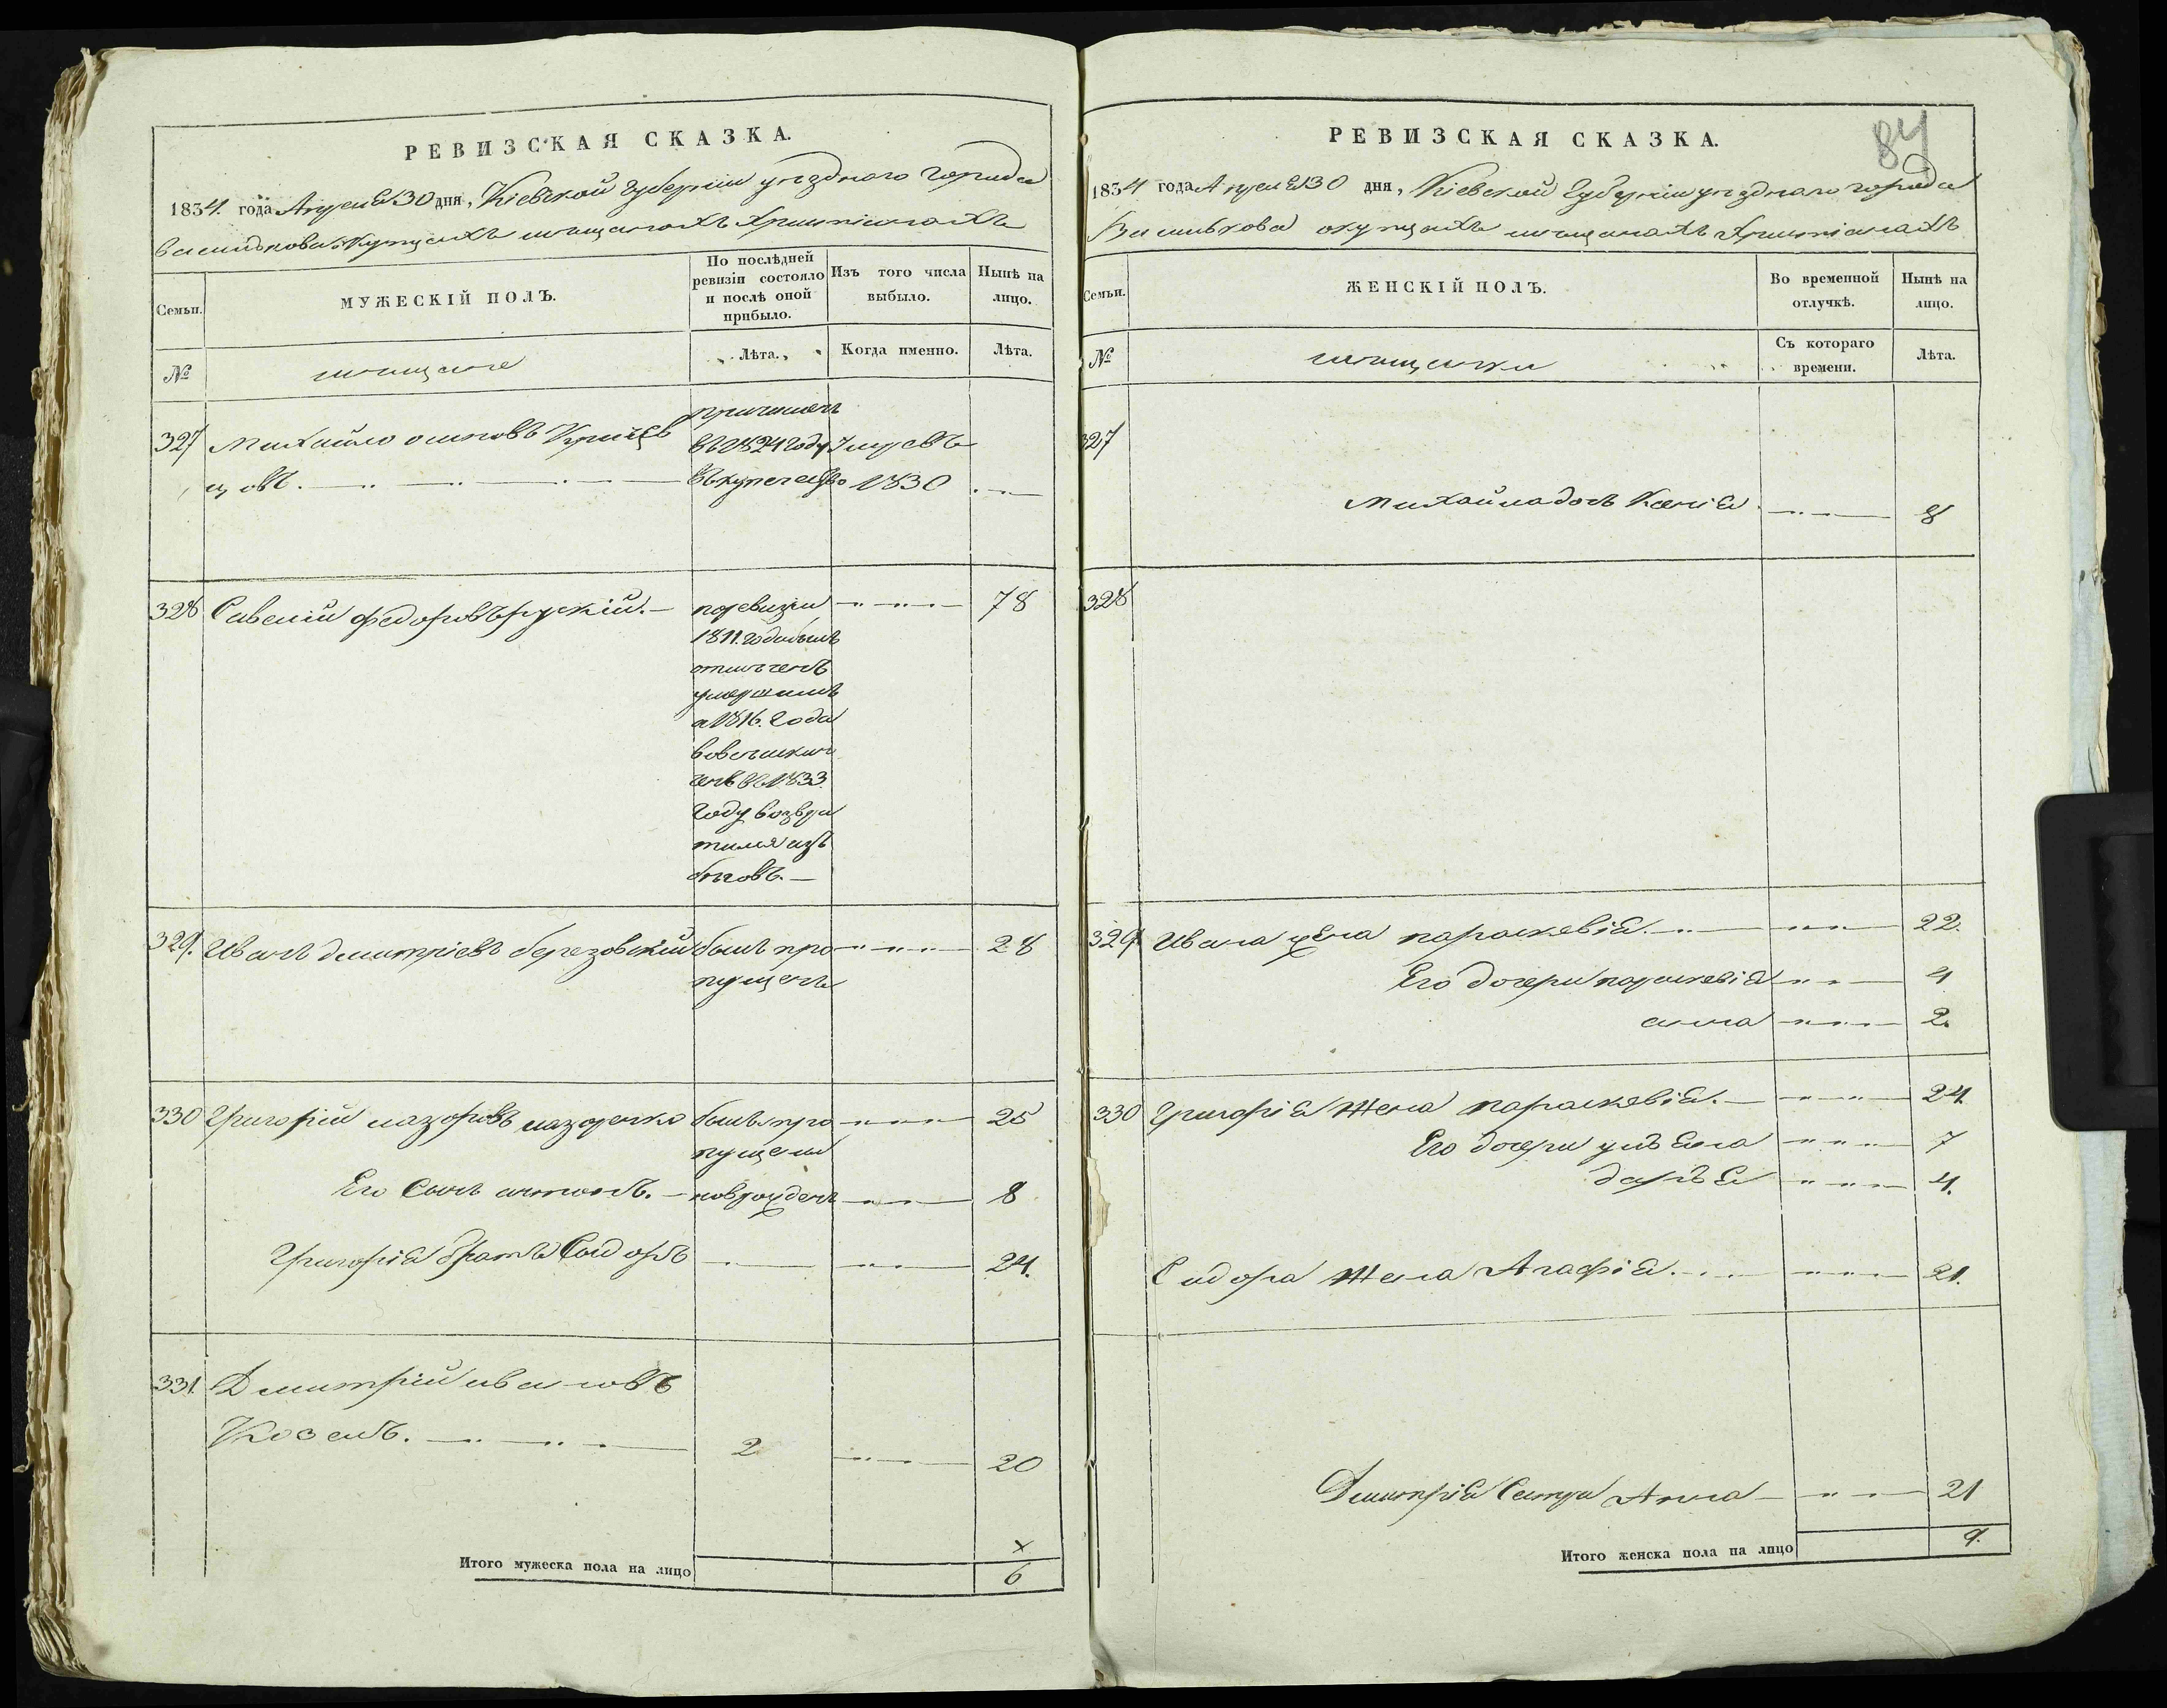 РЕВИЗСКАЯ СКАЗКА.
1834. года Апреля 30 дня, Кіевской губерніи уезднаго города
Василькова о купцахъ мещанахъ христіанахъ
Семьи.
МУЖЕСКІЙ ПОЛЪ.
По послѣдней ревизіи состояло и послѣ оной прибыло.
Изъ того числа выбыло.
Нынѣ на лицо.
№
мещане
Лѣта.
Когда именно.
Лѣта.
327 Михайло осиповъ
цовъ.
причисленъ
въ 1824 году
въ купечество
умре въ
1830
328 Савелій федоровъ рускій. 78
поревизіи
1811. года былъ
отмеченъ
умершимъ
а 1816. года
вовсе исклю
ченъ въ 1833.
году возвра
тился изъ
беговъ.
329. Иванъ дмитріевъ березовскій былъ про 28
пущенъ
330 Григорій лазоровъ лазаренко былъ про 25
пущенъ
Его Сынъ антонъ. новрожденъ 8
Григорія братъ Сидоръ 24.
331. Дмитрій ивановъ
Козелъ. 2 20
х
Итого мужеска пола на лицо 6
84
РЕВИЗСКАЯ СКАЗКА.
1834 года Апреля 30 дня, Кіевской Губерніи уезднаго города
Василькова о купцахъ мещанахъ христіанахъ
Семьи.
ЖЕНСКІЙ ПОЛЪ.
Во временной отлучкѣ.
Нынѣ на лицо.
№
мещанки
Съ котораго времени.
Лѣта.
327
Михайла дочь Ксенія 8
328
329. Ивана жена параскевія. 22.
Его дочери параскевія 4
анна 2.
330 Григорія жена параскевія. 24.
Его дочери ульяна 7
дарья 4.
Сидора жена Агафія. 21.
Дмитрія Сестра Анна 21
Итого женска пола на лицо 9.